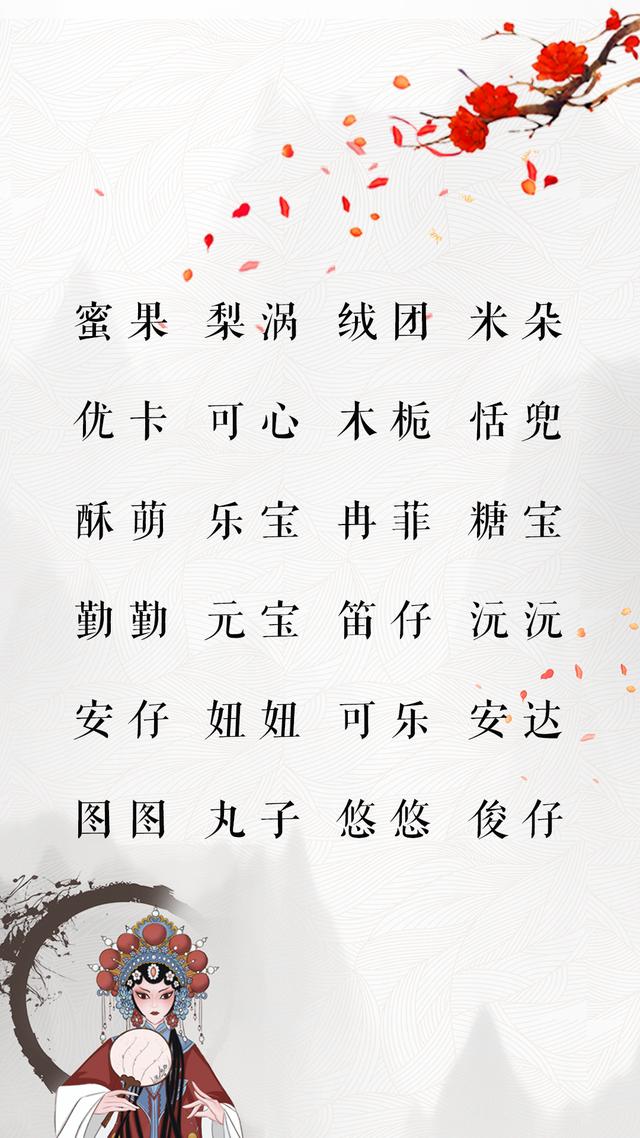 蜜果 梨涡 绒团 米朵
优卡 可心 木栀 恬兜
酥萌 乐宝 冉菲 糖宝
勤勤 元宝 笛仔 沅沅
安仔 妞妞 可乐 安达
图图 丸子 悠悠 俊仔